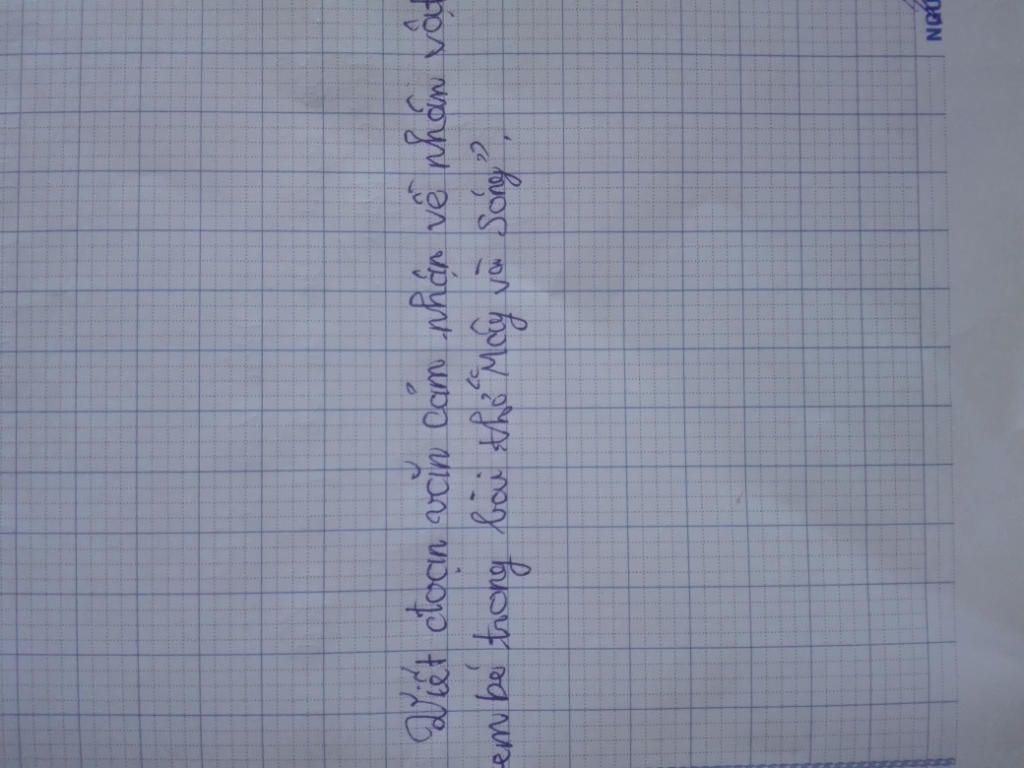 Viết đoạn văn cảm nhận về nhân vật
em bé trong bài thơ "Mây và Sóng".